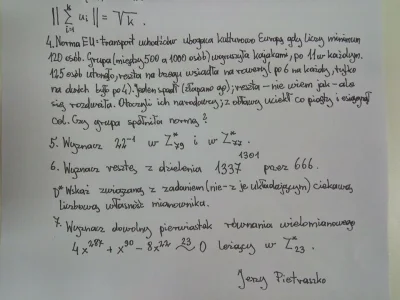 || Σ_{i=1}^{k} u_i || = √k .
4. Norma EU: transport uchodźców ubogaca kulturowo Europę, gdy liczy minimum
120 osób. Grupa (między 500 a 1000 osób) wyruszyła kajakami, po 11 w każdym.
125 osób utonęło, reszta na brzegu wsiadła na rowery (po 6 na każdy, tylko
na dwóch było po 4). Jeden spadł (złapano go); reszta – nie wiem jak – ale
się rozdwoiła. Otoczyli ich narodowcy; z obławy uciekł co piąty i osiągnął
cel. Czy grupa spełniła normę?
5. Wyznacz 22⁻¹ w Z*₇₉ i w Z*₇₇.
6. Wyznacz resztę z dzielenia 1337¹³⁰¹ przez 666.
D* Wskaż związaną z zadaniem (nie - z je układającym) ciekawą
liczbową własność mianownika.
7. Wyznacz dowolny pierwiastek równania wielomianowego
4x²⁸⁷ + x⁹⁰ − 8x²² ≈²³ 0 leżący w Z*₂₃.
Jerzy Pietraszko